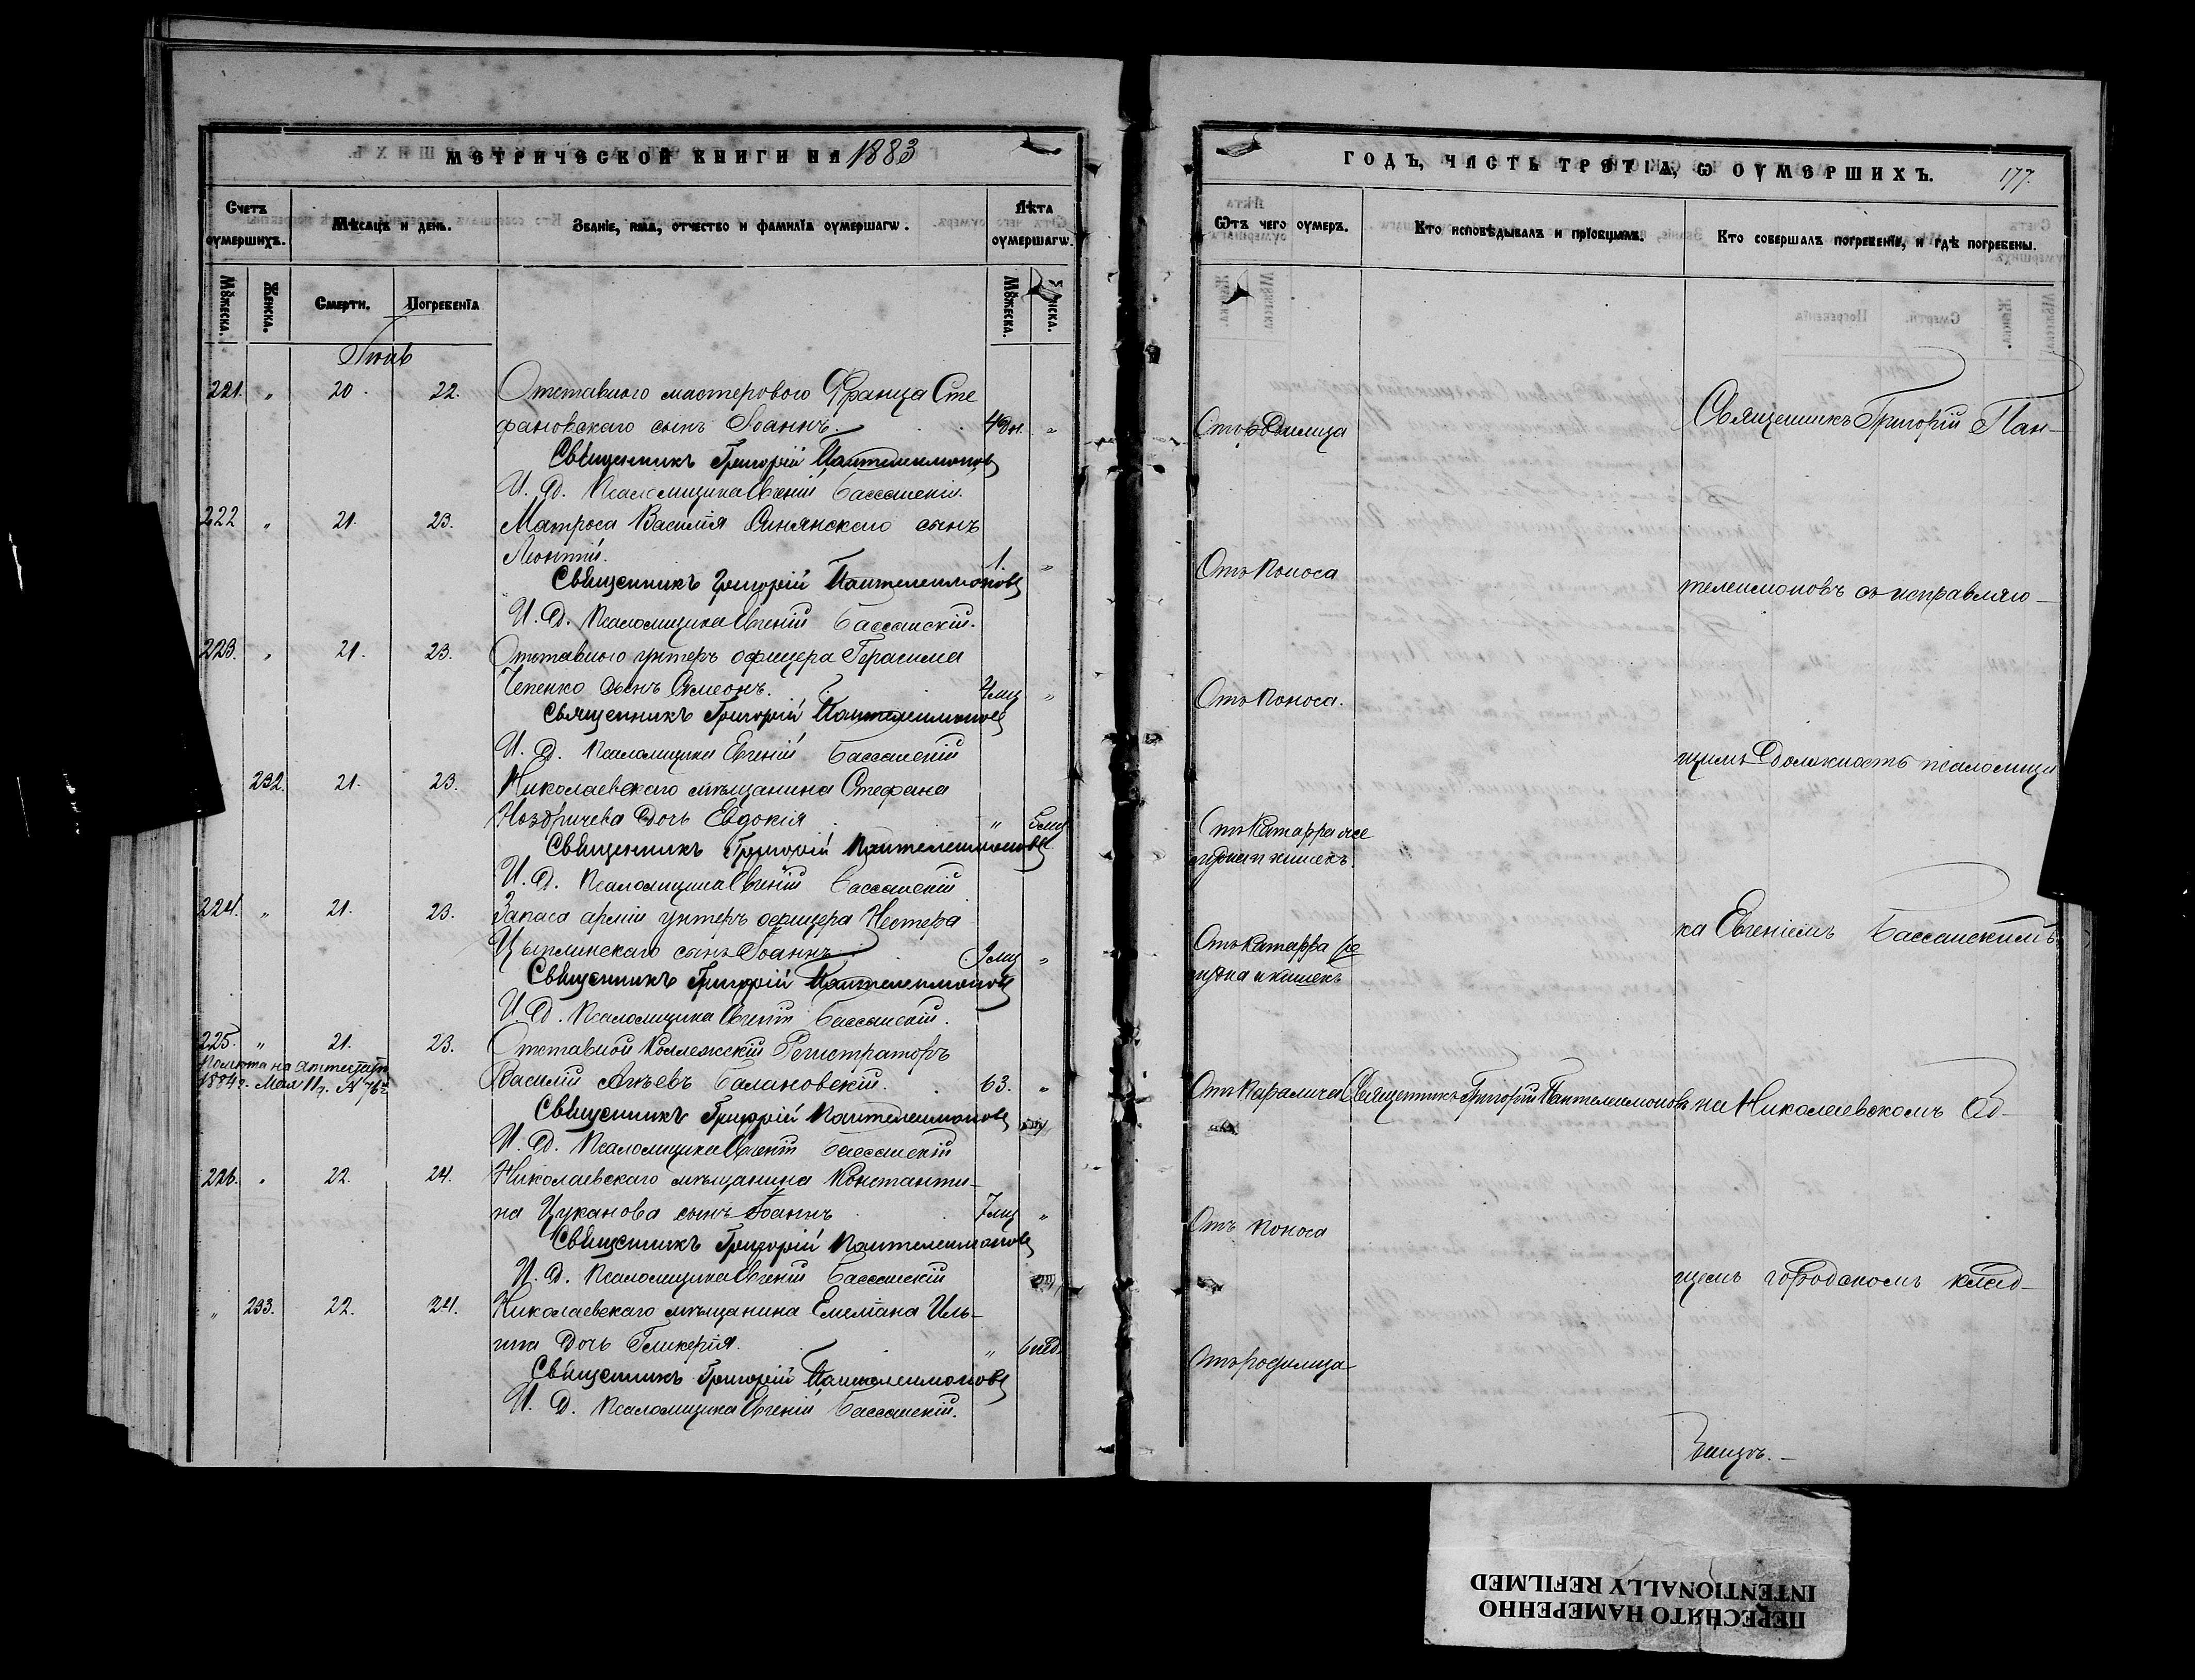 МЕТРИЧЕСКОЙ КНИГИ НА 1883
Счетъ оумершихъ.
Мѣсяцъ и день.
Званіе, имя, отчество и фамилія оумершагѡ.
Лѣта оумершагѡ.
Мꙋжеска.
Женска.
Смерти.
Погребенїа
Мꙋжеска.
Женска.
Іюль
221. " 20. 22. Отставного мастерового Франца Сте
фановскаго сынъ Іоаннъ. 4 дн. "
Священникъ Григорій Пантелеимоновъ
И. Д. Псаломщика Евгеній Бассанскій.
222 " 21. 23. Матроса Василія Синянскаго сынъ
Леонтій. 1. "
Священникъ Григорій Пантелеимоновъ
И. Д. Псаломщика Евгеній Бассанскій.
223. " 21. 23. Отставного унтеръ офицера Герасима
Чепенко сынъ Симеонъ. "
Священникъ Григорій Пантелеимоновъ
И. Д. Псаломщика Евгеній Бассанскій
232. 21. 23. Николаевскаго мѣщанина Стефана
Ноздричева дочь Евдокія " 5 мц
Священникъ Григорій Пантелеимоновъ
И. Д. Псаломщика Евгеній Бассанскій
224. " 21. 23. Запаса арміи унтеръ офицера Нестера
Цыплинскаго сынъ Іоаннъ 9 мц "
Священникъ Григорій Пантелеимоновъ
И. Д. Псаломщика Евгеній Бассанскій.
225. " 21. 23. Отставной Коллежскій Регистраторъ
1884 г. Мая 11 д. №
Василій Балановскій. 63. "
Священникъ Григорій Пантелеимоновъ
И. Д. Псаломщика Евгеній Бассанскій
226. " 22. 24. Николаевскаго мѣщанина Константи-
на Цуканова сынъ Іоаннъ 7 мц "
Священникъ Григорій Пантелеимоновъ
И. Д. Псаломщика Евгеній Бассанскій
" 233. 22. 24. Николаевскаго мѣщанина Емеліана Иль-
ина дочь Гликерія. " 6 нед.
Священникъ Григорій Пантелеимоновъ
И. Д. Псаломщика Евгеній Бассанскій.
ГОДЪ, ЧАСТЬ ТРЕТІѦ, Ѡ ОУМЕРШИХЪ. 177.
Ѿтъ чего оумеръ.
Кто исповѣдывалъ и прїобщалъ.
Кто совершалъ погребенїе, и гдѣ погребены.
Отъ родимца
Священникъ Григорій Пан-
Отъ поноса
телеимоновъ съ исправляю-
Отъ поноса.
щимъ должность псаломщи
Отъ катарра же
лудка и кишекъ.
ка Евгеніемъ Бассанскимъ
Отъ катарра же
лудка и кишекъ
Отъ паралича Священникъ Григорій Пантелеимоновъ на Николаевскомъ Об-
Отъ поноса
щемъ городскомъ клад-
Отъ родимца
бищѣ.-
ПЕРЕСНЯТО НАМЕРЕННО
INTENTIONALLY REFILMED